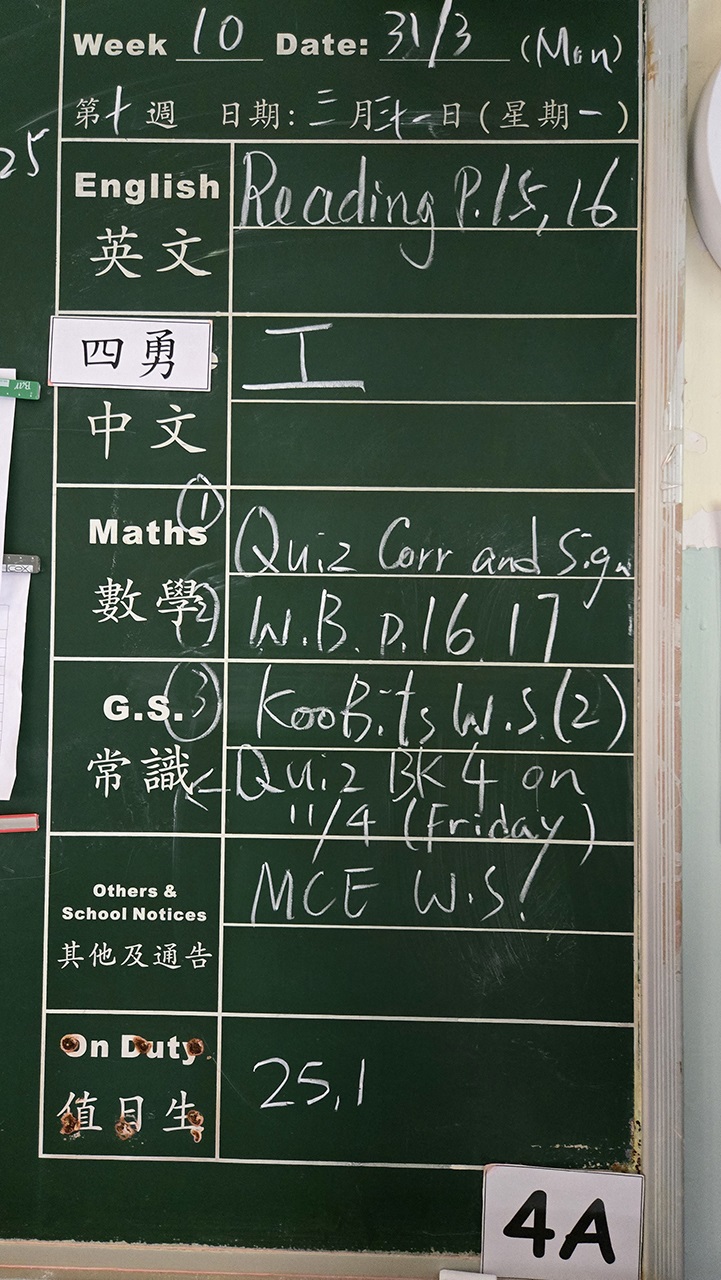 Week 10 Date: 31/3 (Mon)
第十週 日期: 三月三十一日 (星期一)
25
English Reading P.15, 16
英文
四勇 工
中文
Maths ① Quiz Corr and Sign
數學 ② W.B. p.16, 17
G.S. ③ KooBits W.S (2)
常識 ← Quiz BK 4 on
11/4 (Friday)
Others & MCE W.S!
School Notices
其他及通告
On Duty 25,1
值日生
4A